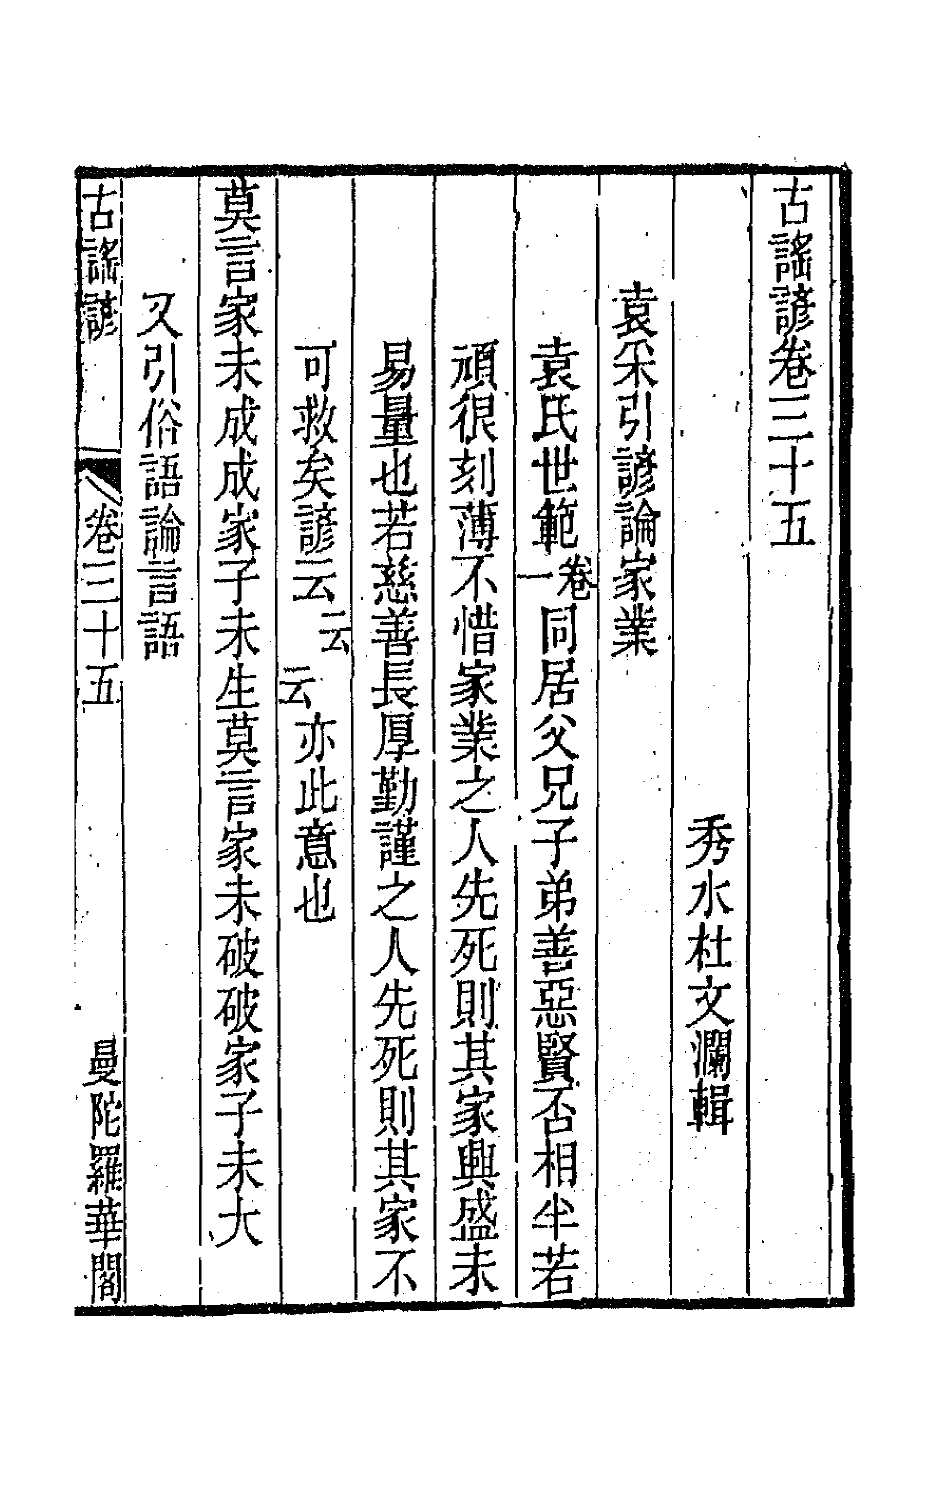 古謠諺卷三十五
秀水杜文瀾輯
袁采引諺論家業
袁氏世範卷一同居父兄子弟善惡賢否相半若
頑很刻薄不惜家業之人先死則其家興盛未
易量也若慈善長厚勤謹之人先死則其家不
可救矣諺云云云亦此意也
莫言家未成成家子未生莫言家未破破家子未大
又引俗語論言語
古謠諺 卷三十五 曼陀羅華閣